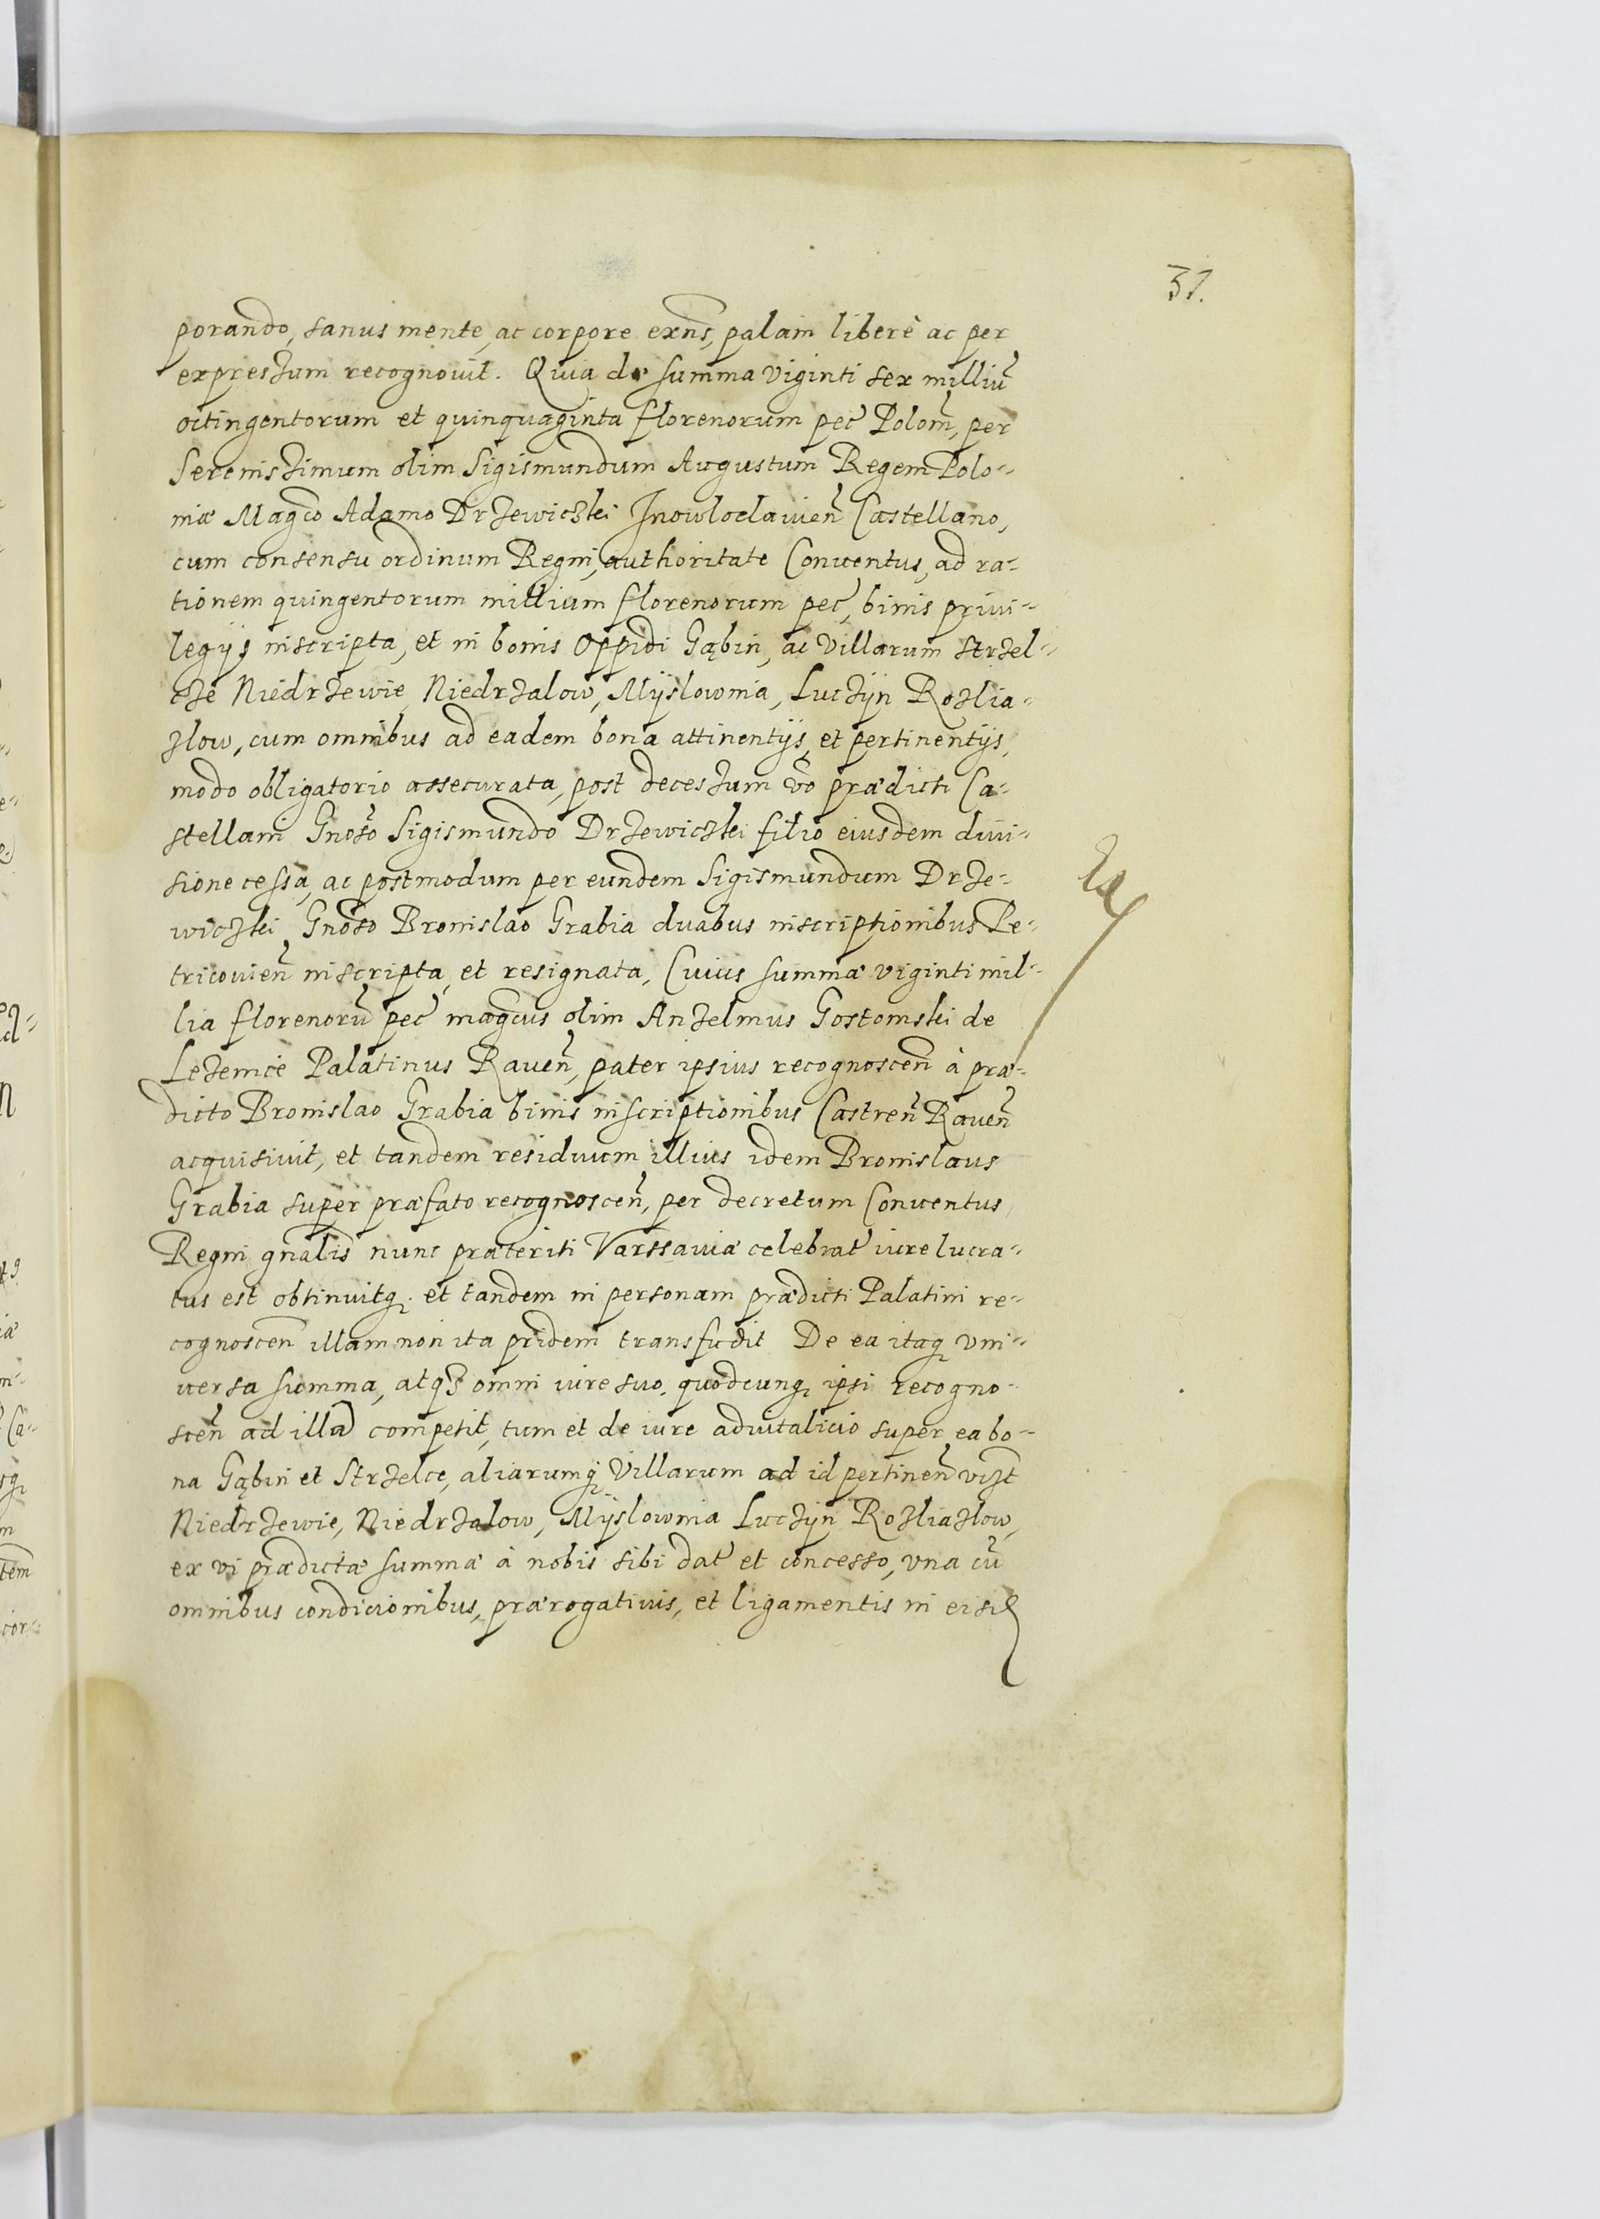 31.
porando, sanus mente, ac corpore exns, palam liberè ac per
expressum recognovit. Quia de summa viginti sex milliũ
octingentorum et quinquaginta florenorum pec̃ Poloñ, per
Serenissimum olim Sigismundum Augustum Regem Polo-
niæ Magco Adamo Drzewiczki Inowloclawieñ Castellano,
cum consensu ordinum Regni, authoritate Conventus, ad ra-
tionem quingentorum millium florenorum pec̃, binis privi-
legijs inscripta, et in bonis Oppidi Gąbin, ac Villarum Strzel-
cze Niedrzewie, Niedrzalow, Mÿslownia, Luczÿn Rozlia-
zlow, cum omnibus ad eadem bona attinentijs, et pertinentijs,
modo obligatorio assecurata, post decessum vo prædicti Ca-
stellani Gnoso Sigismundo Drzewiczki filio eiusdem divi-
sione cessa, ac postmodum per eundem Sigismundum Drze-
wiczki Gnoso Bronislao Grabia duabus inscriptionibus Pe-
tricovieñ inscripta, et resignata, Cuius summæ viginti mil-
lia florenorũ pec̃ magcus olim Anzelmus Gostomski de
Lezenice Palatinus Raveñ, pater ipsius recognosceñ à præ-
dicto Bronislao Grabia binis inscriptionibus Castreñ Raveñ
acquisivit, et tandem residuum illius idem Bronislaus
Grabia super præfato recognosceñ, per decretum Conventus
Regni gnalis nunc præteriti Varssaviæ celebrat̃ iure lucra-
tus est obtinuitq; et tandem in personam prædicti Palatini re-
cognosceñ illam non ita pridem transfudit De ea itaq; vni-
versa summa, atq; omni iure suo, quodcunq; ipsi recogno-
sceñ ad illã competit, tum et de iure advitalicio super ea bo-
na Gąbin et Strzelce, aliarumq; Villarum ad id pertineñ vizt
Niedrzewie, Niedrzalow, Mÿslownia Luczÿn Rozliazlow,
ex vi prædictæ summæ à nobis sibi dat̃ et concesso, vna cũ
omnibus condicionibus, prærogativis, et ligamentis in eisd̃